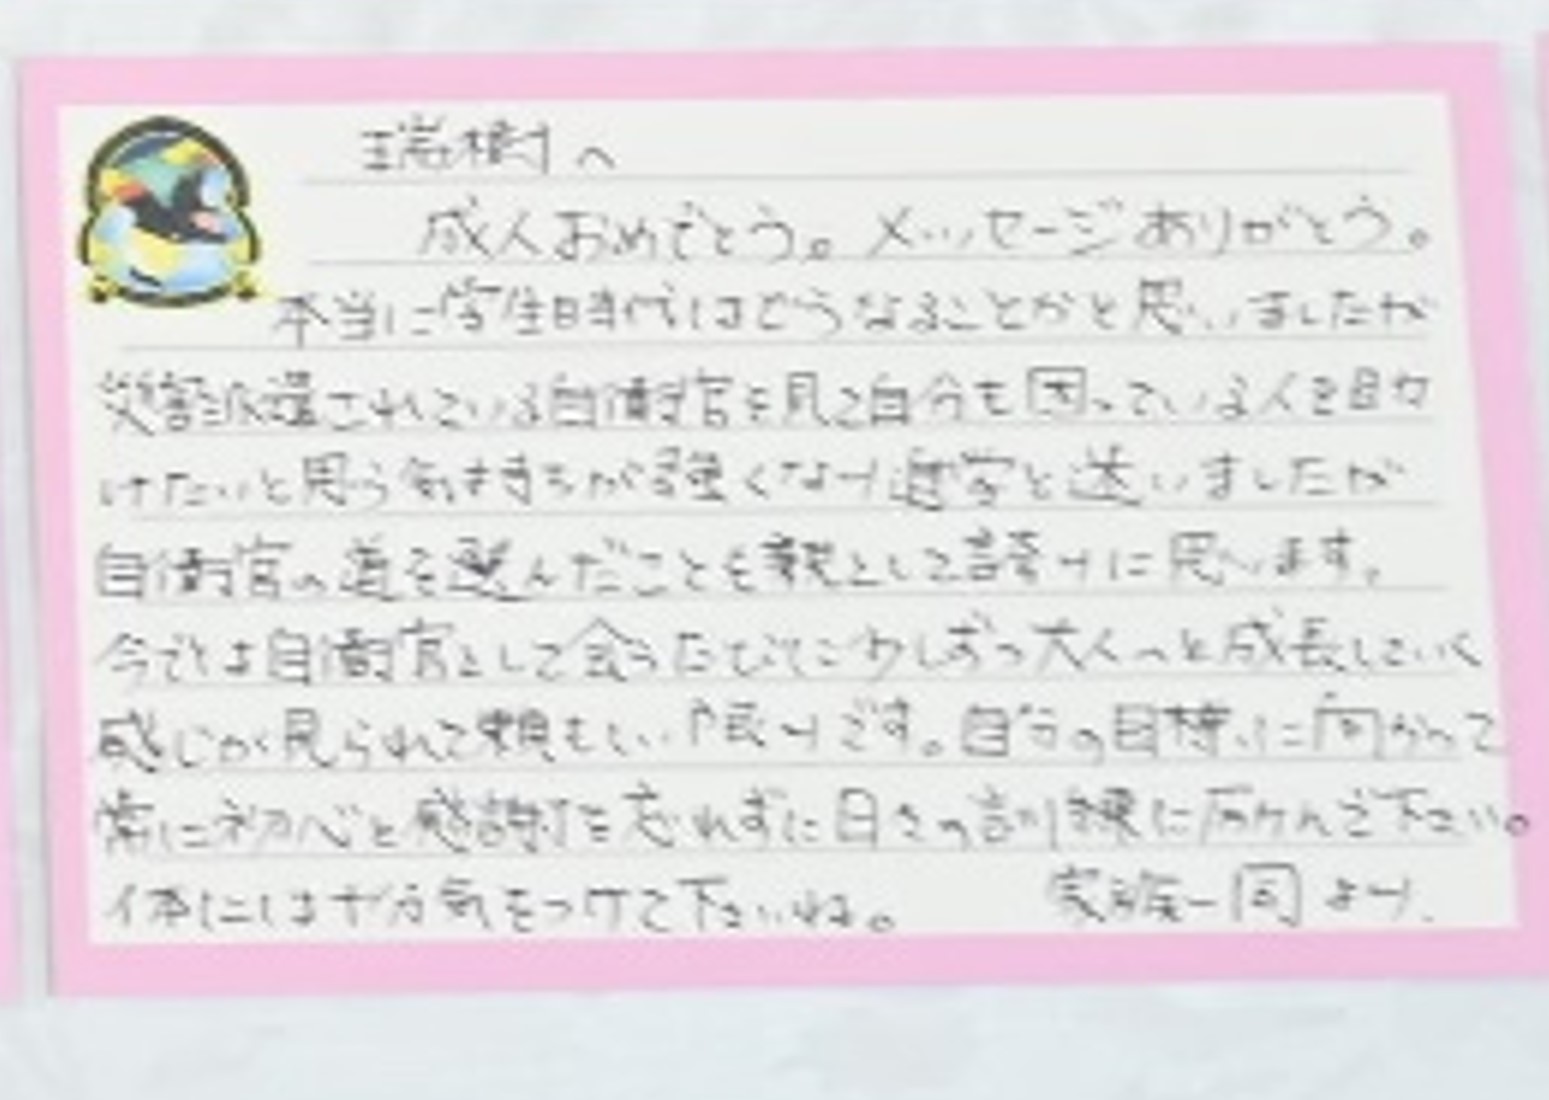 瑞樹へ
成人おめでとう。メッセージありがとう。
本当に学生時代はどうなることかと思いましたが
災害派遣されている自衛官を見て自分も困っている人を助
けたいと思う気持ちが強くなり進学と迷いましたが
自衛官の道を選んだことを親として誇りに思います。
今では自衛官として会うたびに少しずつ大人へと成長していく
感じが見られて頼もしい限りです。自分の目標に向かって
常に初心と感謝を忘れずに日々の訓練に励んで下さい。
体には十分気をつけて下さいね。 家族一同より.